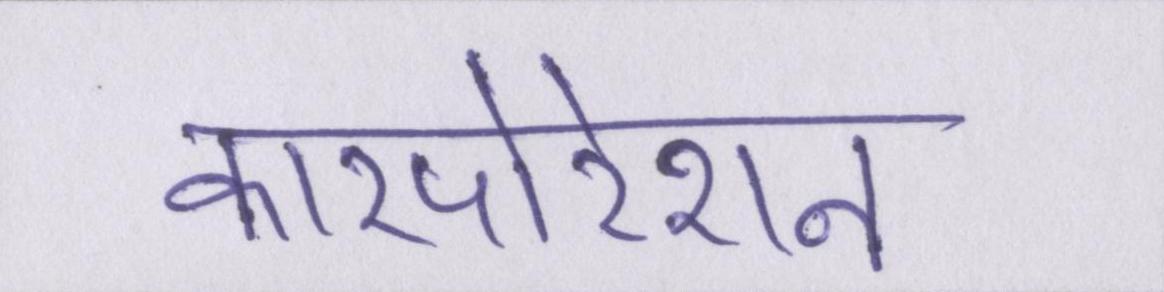 कारपोरेशन